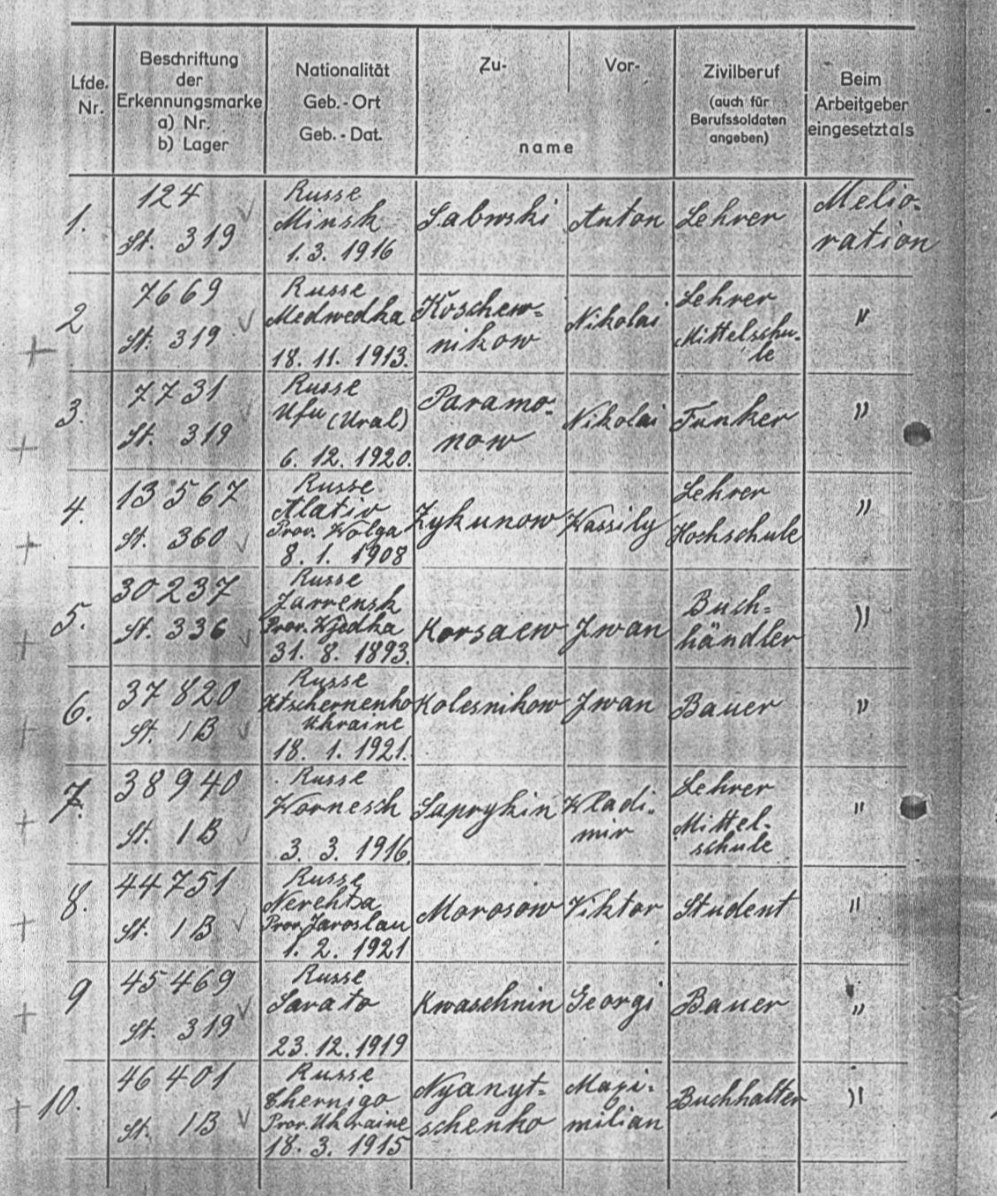 Lfde. Nr.
Beschriftung der Erkennungsmarke a) Nr. b) Lager
Nationalität Geb.-Ort Geb.-Dat.
Zu- Vor-
name
Zivilberuf (auch für Berufssoldaten angeben)
Beim Arbeitgeber eingesetzt als
1. 124 Russe Sabwski Anton Lehrer Melio-
St. 319 Minsk ration
1. 3. 1916
2 7669 Russe Koschew- Nikolai Lehrer "
St. 319 Medwedka nikow Mittelschu-
18. 11. 1913. le
3. 7731 Russe Paramo- Nikolai Funker "
St. 319 Ufu (Ural) now
6. 12. 1920.
4. 13567 Russe Zykunow Wassily Lehrer "
St. 360 Alativ Hochschule
Prov. Wolga
8. 1. 1908
5. 30237 Russe Korsaew Jwan Buch- "
St. 336 Jarrensk händler
Prov. Wjedka
31. 8. 1893.
6. 37820 Russe Kolesnikow Jwan Bauer "
St. 1B Ukraine
18. 1. 1921.
7. 38940 Russe Saprykin Wladi- Lehrer "
St. 1B Wornesch mir Mittel-
3. 3. 1916. schule
8. 44751 Russe Morosow Viktor Student "
St. 1B Nerehta
Prov. Jaroslau
1. 2. 1921
9 45469 Russe Kwaschnin Georgi Bauer "
St. 319 Sarato
23.12.1919
10. 46401 Russe Nyanyt- Maxi- Buchhalter "
St. 1B Chernigo schenko milian
Prov. Ukraine
18. 3. 1915